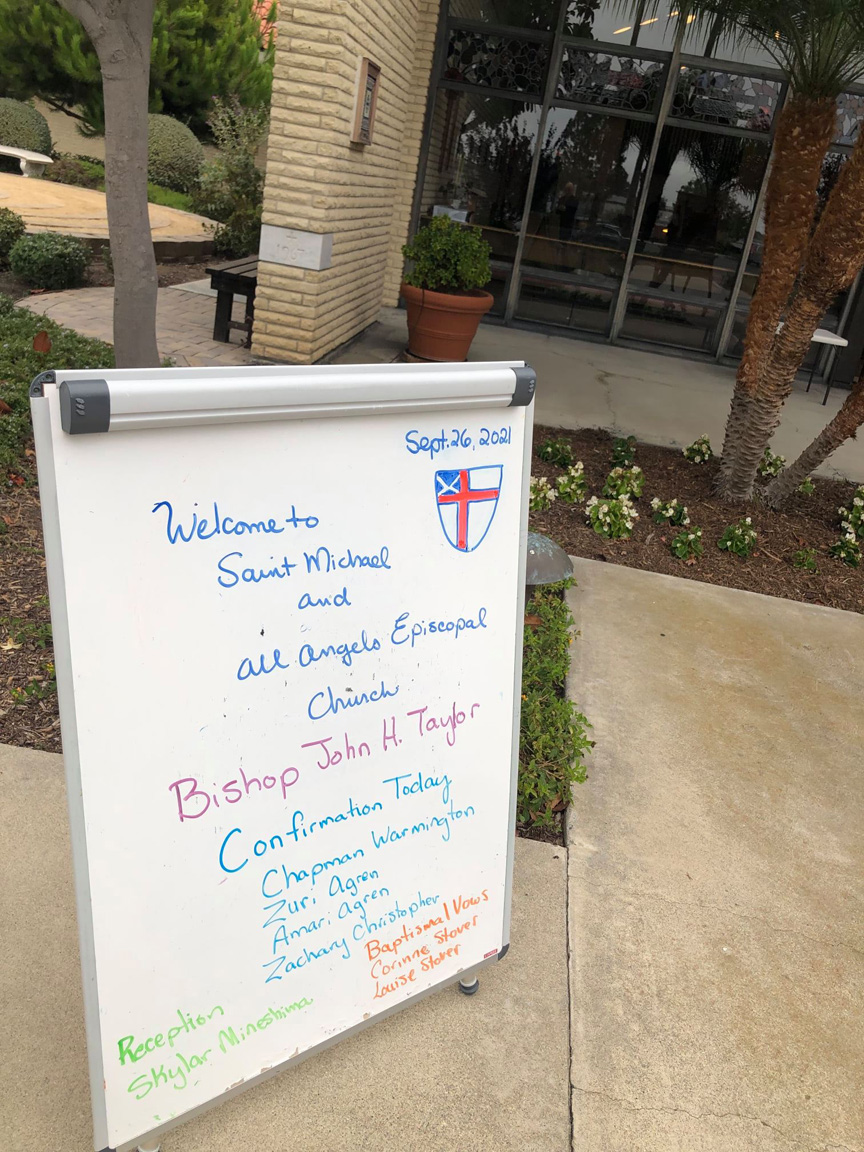 Sept. 26, 2021
Welcome to
Saint Michael
and
all angels Episcopal
Church
Bishop John H. Taylor
Confirmation Today
Chapman Warmington
Zuri Agren
Amari Agren
Zachary Christopher
Baptismal Vows
Corinne Stover
Louise Stover
Reception
Skylar Mineshima